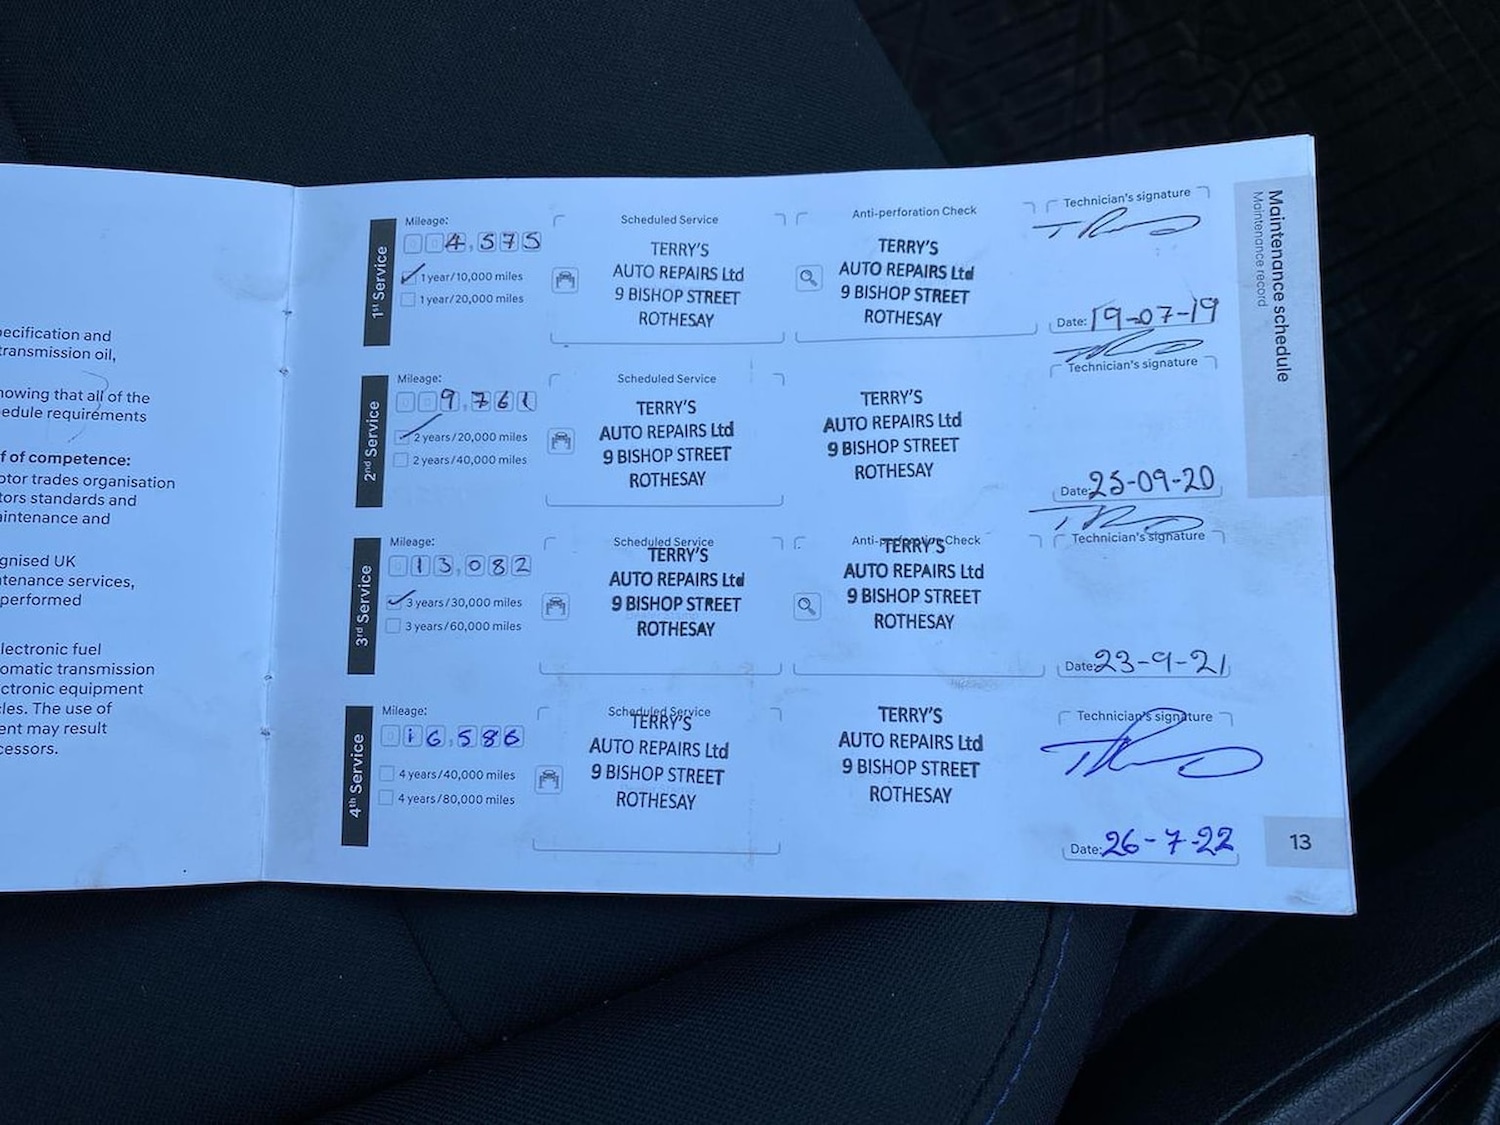 pecification and
transmission oil,
nowing that all of the
edule requirements
f of competence:
otor trades organisation
tors standards and
aintenance and
gnised UK
ntenance services,
performed
lectronic fuel
omatic transmission
ctronic equipment
cles. The use of
ent may result
cessors.
1st Service
Mileage:
004,575
1 year/10,000 miles
1 year/20,000 miles
Scheduled Service
TERRY'S
AUTO REPAIRS Ltd
9 BISHOP STREET
ROTHESAY
Anti-perforation Check
TERRY'S
AUTO REPAIRS Ltd
9 BISHOP STREET
ROTHESAY
Technician's signature
Date: 19-07-19
2nd Service
Mileage:
009,761
2 years/20,000 miles
2 years/40,000 miles
Scheduled Service
TERRY'S
AUTO REPAIRS Ltd
9 BISHOP STREET
ROTHESAY
TERRY'S
AUTO REPAIRS Ltd
9 BISHOP STREET
ROTHESAY
Technician's signature
Date: 25-09-20
3rd Service
Mileage:
013,082
3 years/30,000 miles
3 years/60,000 miles
Scheduled Service
TERRY'S
AUTO REPAIRS Ltd
9 BISHOP STREET
ROTHESAY
Anti-perforation Check
TERRY'S
AUTO REPAIRS Ltd
9 BISHOP STREET
ROTHESAY
Technician's signature
Date: 23-9-21
4th Service
Mileage:
016,586
4 years/40,000 miles
4 years/80,000 miles
Scheduled Service
TERRY'S
AUTO REPAIRS Ltd
9 BISHOP STREET
ROTHESAY
TERRY'S
AUTO REPAIRS Ltd
9 BISHOP STREET
ROTHESAY
Technician's signature
Date: 26-7-22
Maintenance schedule
Maintenance record
13